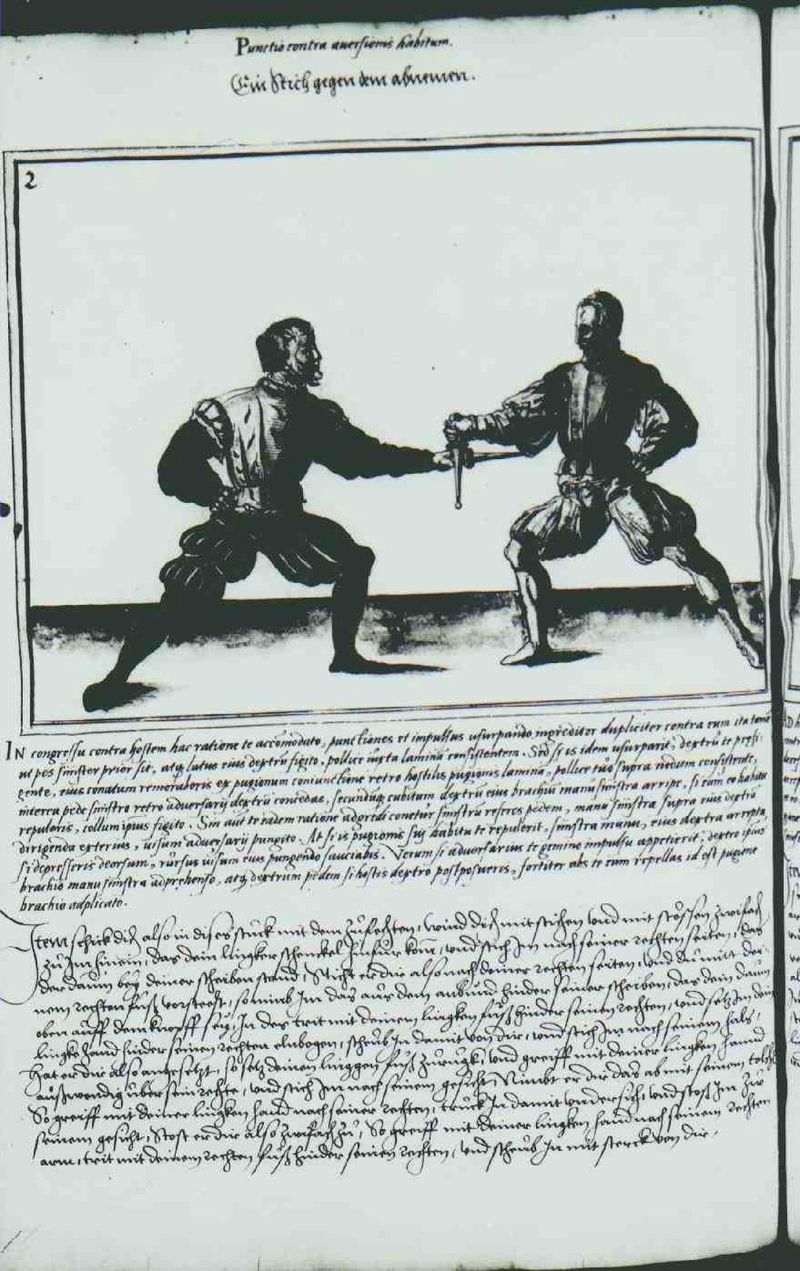 Punctio contra auersionis habitum.
Ein Stich gegen dem abnemen.
2
IN congressu contra hostem hac ratione te accomodato, punctiones et impulsus usurpando ingreditor dupliciter contra eum ita tamē
ut pes sinister prior sit, atq₃ latus eius dextrū figito, pollice iuxta lamina consistentem. Sed si is idem usurparit, dextrū te
gente, eius conatum remoraberis ex pugionum coniunctione retro hostilis pugionis lamina, pollice tuo supra eiusdem consistente,
interea pede sinistro retro aduersarij dextrū concedas, secundūq₃ cubitum dextrū eius brachiū manu sinistra arripe, si eum eo habitu
repuleris, collum ipius figito. Sin aūt te eadem ratione adoriri conetur sinistrū referes pedem, manu sinistra supra eius dextrā
dirigenda exterius, uisum aduersarij pungito. At si is pugionis sui habitu te repulerit, sinistra manu, eius dextra arrepta,
si depresseris deorsum, rursus uisum eius pungendo sauciabis. Verum si aduersarius te gemino impulsu appetierit, dextro ipius
brachio manu sinistra adprehenso, atq₃ dextrum pedem si hostis dextro postposueris, fortiter abs te eum repellas id est pugione
brachio adplicato.
Item schick dich also in dises stuck mit dem zufechten, wind dich mit stichen und mit stössen zwifach
zu Im hinein, das dein lingker schenckel Infür komt, und stich Im nach seiner rechten seiten, das
der daum bey deiner scheiben stand, Sticht er dir also nach deiner rechten seiten, und du mit dei
nem rechten fuß vorsteest, so nimb Im das auß dem anbund hinder seiner scheiben, das dein daum
oben auff dem knopff sey, In des trit mit deinem lingken fuß hinder seinen rechten, und setz Im dein
lingke hand hinder seinen rechten elnbogen, scheub In damit von dir, und stich Im nach seinem hals,
Hat er dir also angesetzt, so setz deinen linggen fuß zuruck, und greiff mit deiner lingken hand
außwendig uber sein rechte, und stich Im nach seinem gesicht, Nimbt er dir das ab mit seinem
So greiff mit deiner lingken hand nach seiner rechten, truck In damit undersich, und stoß Im zur
seinem gesicht, Stost er dir also zwifach zu, So greiff mit deiner lingken hand nach seinem rechten
arm, trit mit deinem rechten fuß hinder seinen rechten, und scheub In mit sterck von dir.